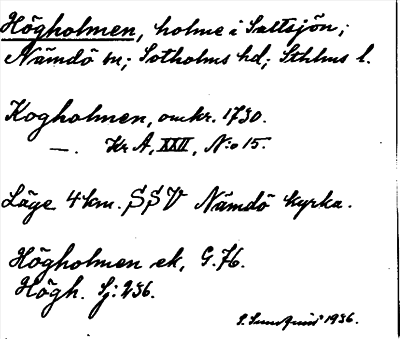 Högholmen, holme i Saltsjön;
Nämdö sn; Sotholms hd; Sthlms l.
Kogholmen, omkr. 1730.
—. Kr A, XXII, N:o 15.
Läge 4 km. SSV Nämdö kyrka.
Högholmen ek, G. 76.
Högh. Sj: 236.
1936.